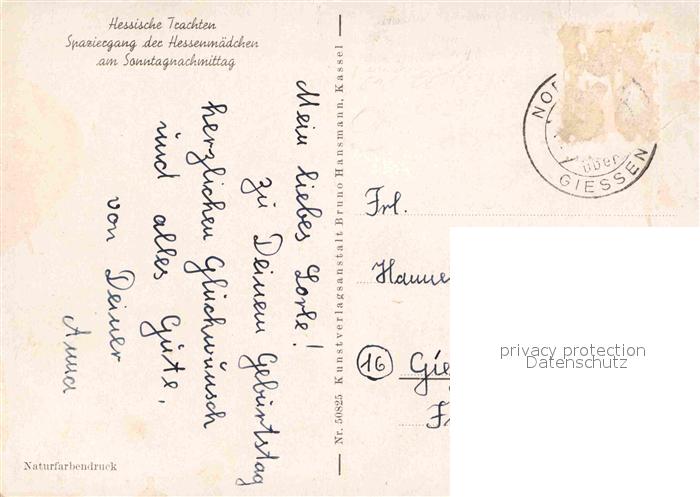 Hessische Trachten
Spaziergang der Hessenmädchen
am Sonntagnachmittag
Mein liebes Lorle!
zu Deinem Geburtstag
herzlichen Glückwunsch
und alles Gute,
von Deiner
Anna
Naturfarbendruck
Nr. 50825 Kunstverlagsanstalt Bruno Hansmann, Kassel
über
GIESSEN
Frl.
Hanne
16
privacy protection
Datenschutz